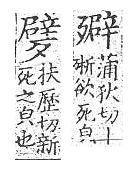 蒲狄切丨
欲死皃
扶歷切新
死之皃也